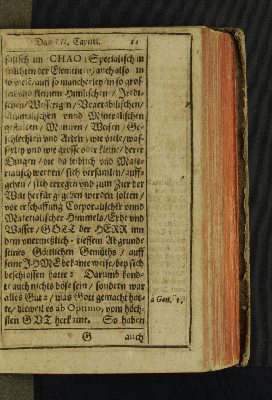 Das III. Capitel.
sälisch im CHAO; Specialisch in
früchten der Elementen / auch also in
so viele / auff so mancherley / in so gros-
sen und kleinen Himlischen / Irrdi-
schen / Wesserigen / Vegetabilischen /
Animalischen vnnd Mineralischen
gestalten / Namen / Wesen / Ge-
schlechten vnd Arden; wie viele / was-
serley vnd wie grosse oder kleine / derer
Dingen / die da leiblich vnd Mate-
rialisch werden / sich versamlen / auff-
gehen / sich erregen vnd zum Zier der
Welt herfür gegeben werden solten /
vor erschaffung Corporalischer vnnd
Materialischer Himmels / Erde vnd
Wasser / GOTT der HERR inn
dem vnermeßlich-tieffen Abgrunde
seines Göttlichen Gemüths / auff
seine IHME bekante weise / bey sich
beschlossen hatte: Darumb kond-
te auch nichts böse sein / sondern war
alles Gut a / was Gott gemacht hat-
te / dieweil es ab Optimo, vom höch-
sten GUT herkame. So haben
a Gen. 1.
G
auch